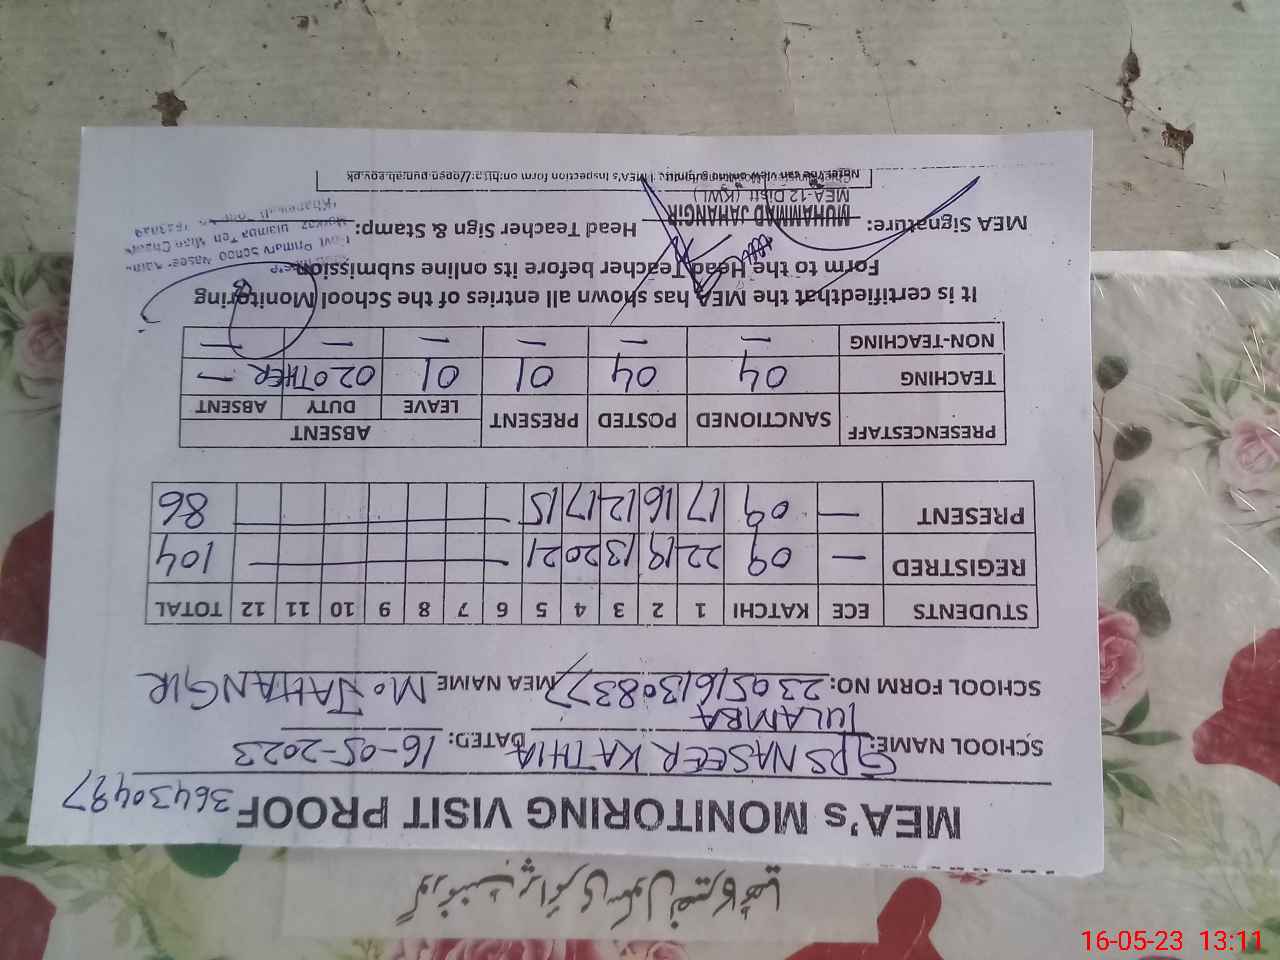 گورنمنٹ پرائمری سکول نصیر کاٹھیا
MEA's MONITORING VISIT PROOF 36430497
SCHOOL NAME: GPS NASEER KATHIA TULAMBA DATED: 16-05-2023
SCHOOL FORM NO: 2305161308377 MEA NAME M. JAHANGIR
STUDENTS ECE KATCHI 1 2 3 4 5 6 7 8 9 10 11 12 TOTAL
REGISTRED — 09 22 19 13 20 21 — 104
PRESENT — 09 17 16 12 17 15 — 86
PRESENCESTAFF SANCTIONED POSTED PRESENT ABSENT
LEAVE DUTY ABSENT
TEACHING 04 04 01 01 02 OTHER —
NON-TEACHING — — — — — —
It is certifiedthat the MEA has shown all entries of the School Monitoring
Form to the Head Teacher before its online submission
MEA Signature: MUHAMMAD JAHANGIR Head Teacher Sign & Stamp:
MEA-12 Distt (KWL)
MEA's Inspection form on:http://open.punjab.gov.pk
16-05-23 13:11